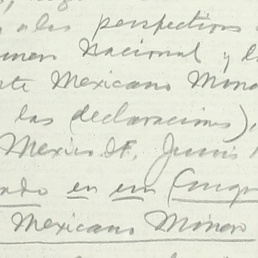 a las perspectivas
Nacional y la
Mexicano Mine
las declaraciones),
Mexico D.F. Junio
en un Congr
Mexicano Minero